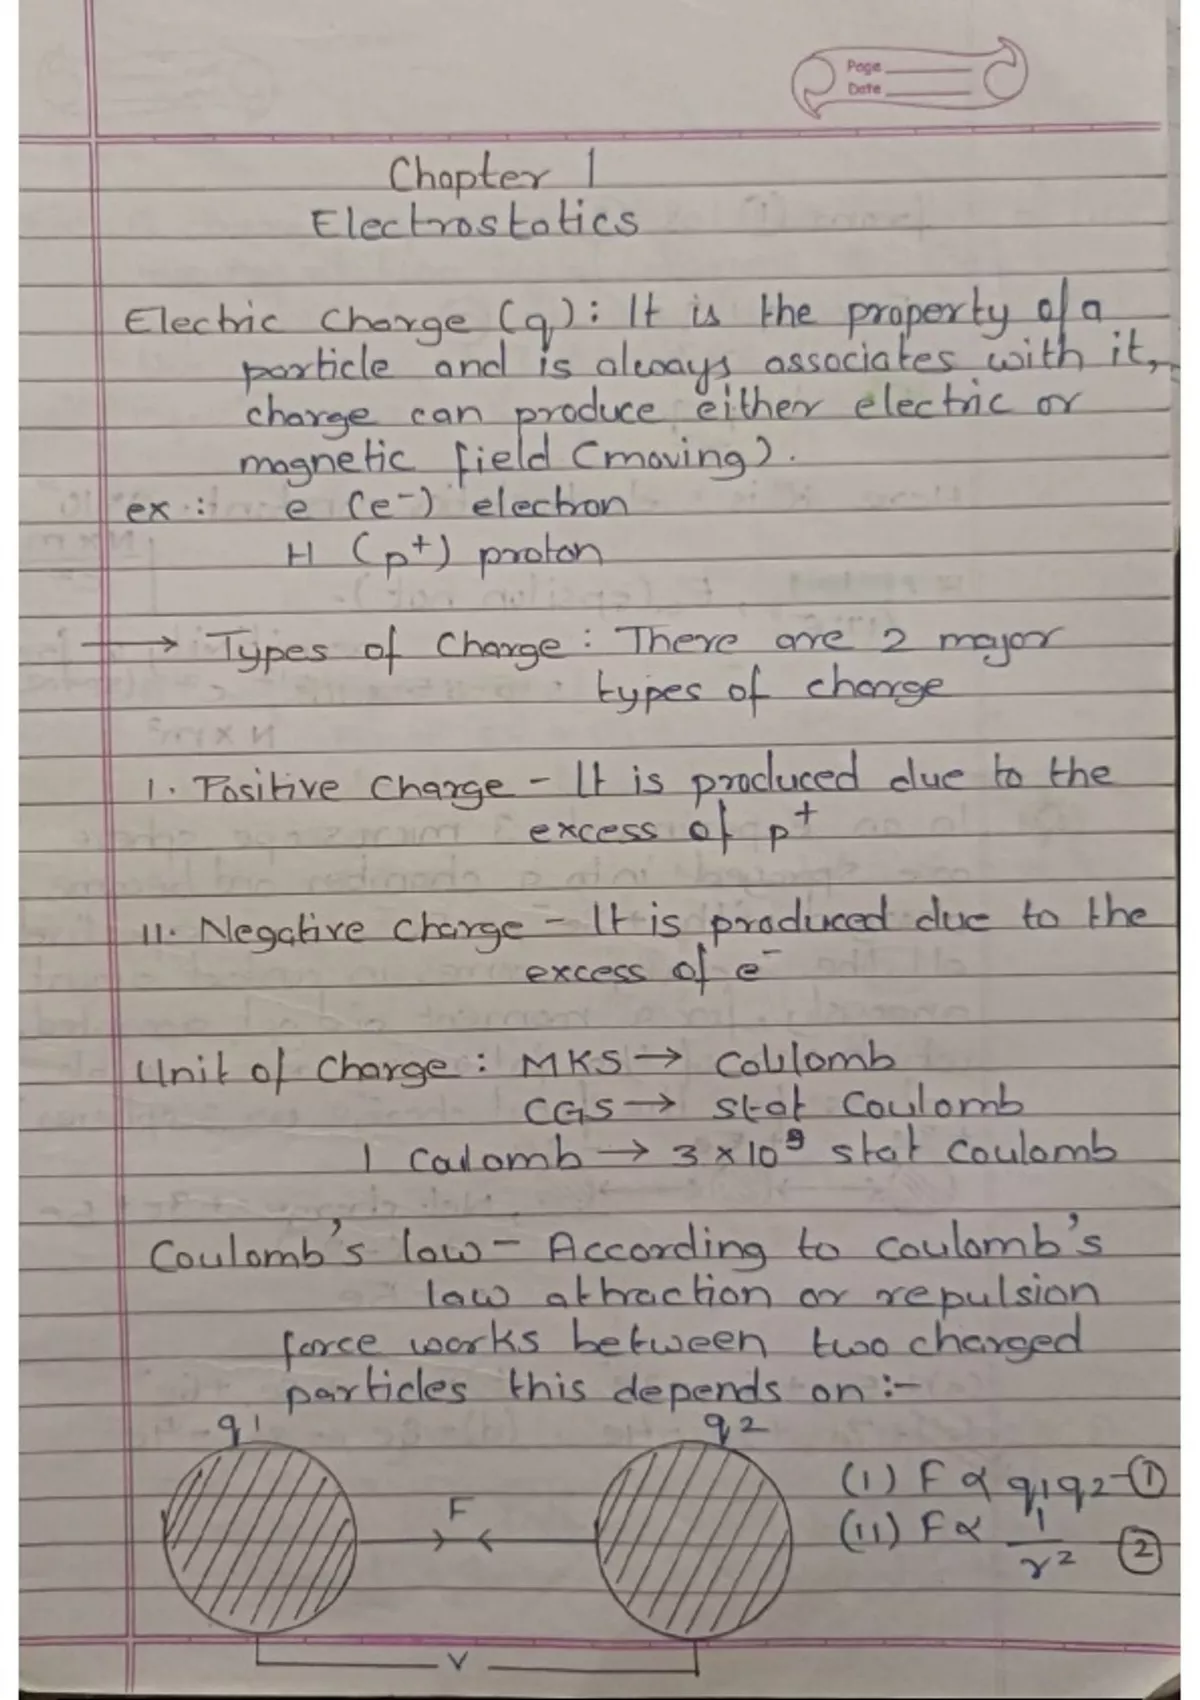 Page
Date
Chapter 1
Electrostatics
Electric Charge (q): It is the property of a
particle and is always associates with it,
charge can produce either electric or
magnetic field (moving).
ex : e (e-) electron
H (p+) proton
→ Types of Charge : There are 2 major
types of charge
I. Positive Charge - It is produced due to the
excess of p+
II. Negative Charge - It is produced due to the
excess of e-
Unit of Charge : MKS → Coulomb
CGS → Stat Coulomb
1 Coulomb → 3 × 10⁹ stat Coulomb
Coulomb's law - According to Coulomb's
law attraction or repulsion
force works between two charged
particles this depends on :-
q1 q2
(I) F ∝ q1q2 - ①
F
(II) F ∝ 1/r² ②
r